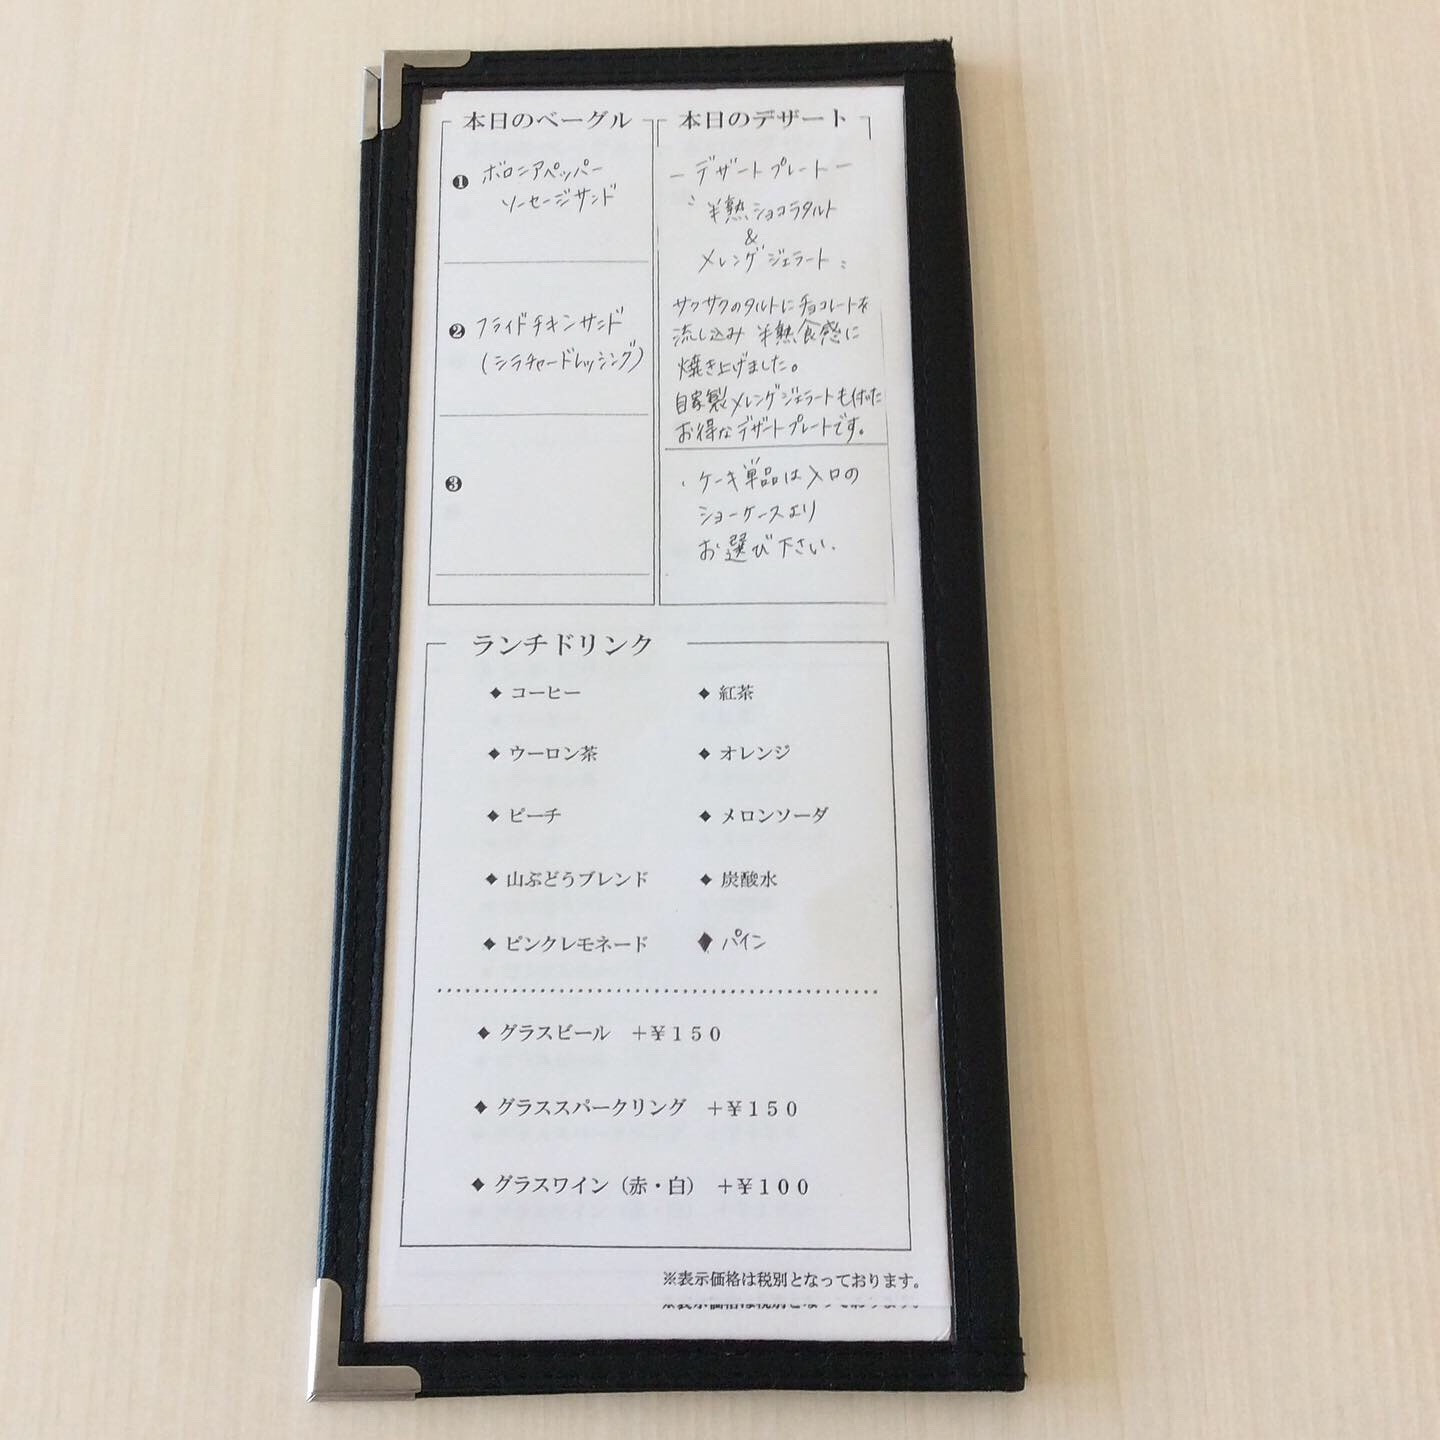 本日のベーグル
❶ ボロニアペッパー
ソーセージサンド
❷ フライドチキンサンド
(シラチャードレッシング)
❸
本日のデザート
― デザートプレート ―
半熟ショコラタルト
&
メレンゲジェラート
サクサクのタルトにチョコレートを
流し込み 半熟食感に
焼き上げました。
自家製メレンゲジェラートも付いた
お得なデザートプレートです。
・ケーキ単品は入口の
ショーケースより
お選び下さい.
ランチドリンク
◆ コーヒー ◆ 紅茶
◆ ウーロン茶 ◆ オレンジ
◆ ピーチ ◆ メロンソーダ
◆ 山ぶどうブレンド ◆ 炭酸水
◆ ピンクレモネード ◆ パイン
◆ グラスビール ＋￥１５０
◆ グラススパークリング ＋￥１５０
◆ グラスワイン（赤・白） ＋￥１００
※表示価格は税別となっております。
※表示価格は税別となっております。